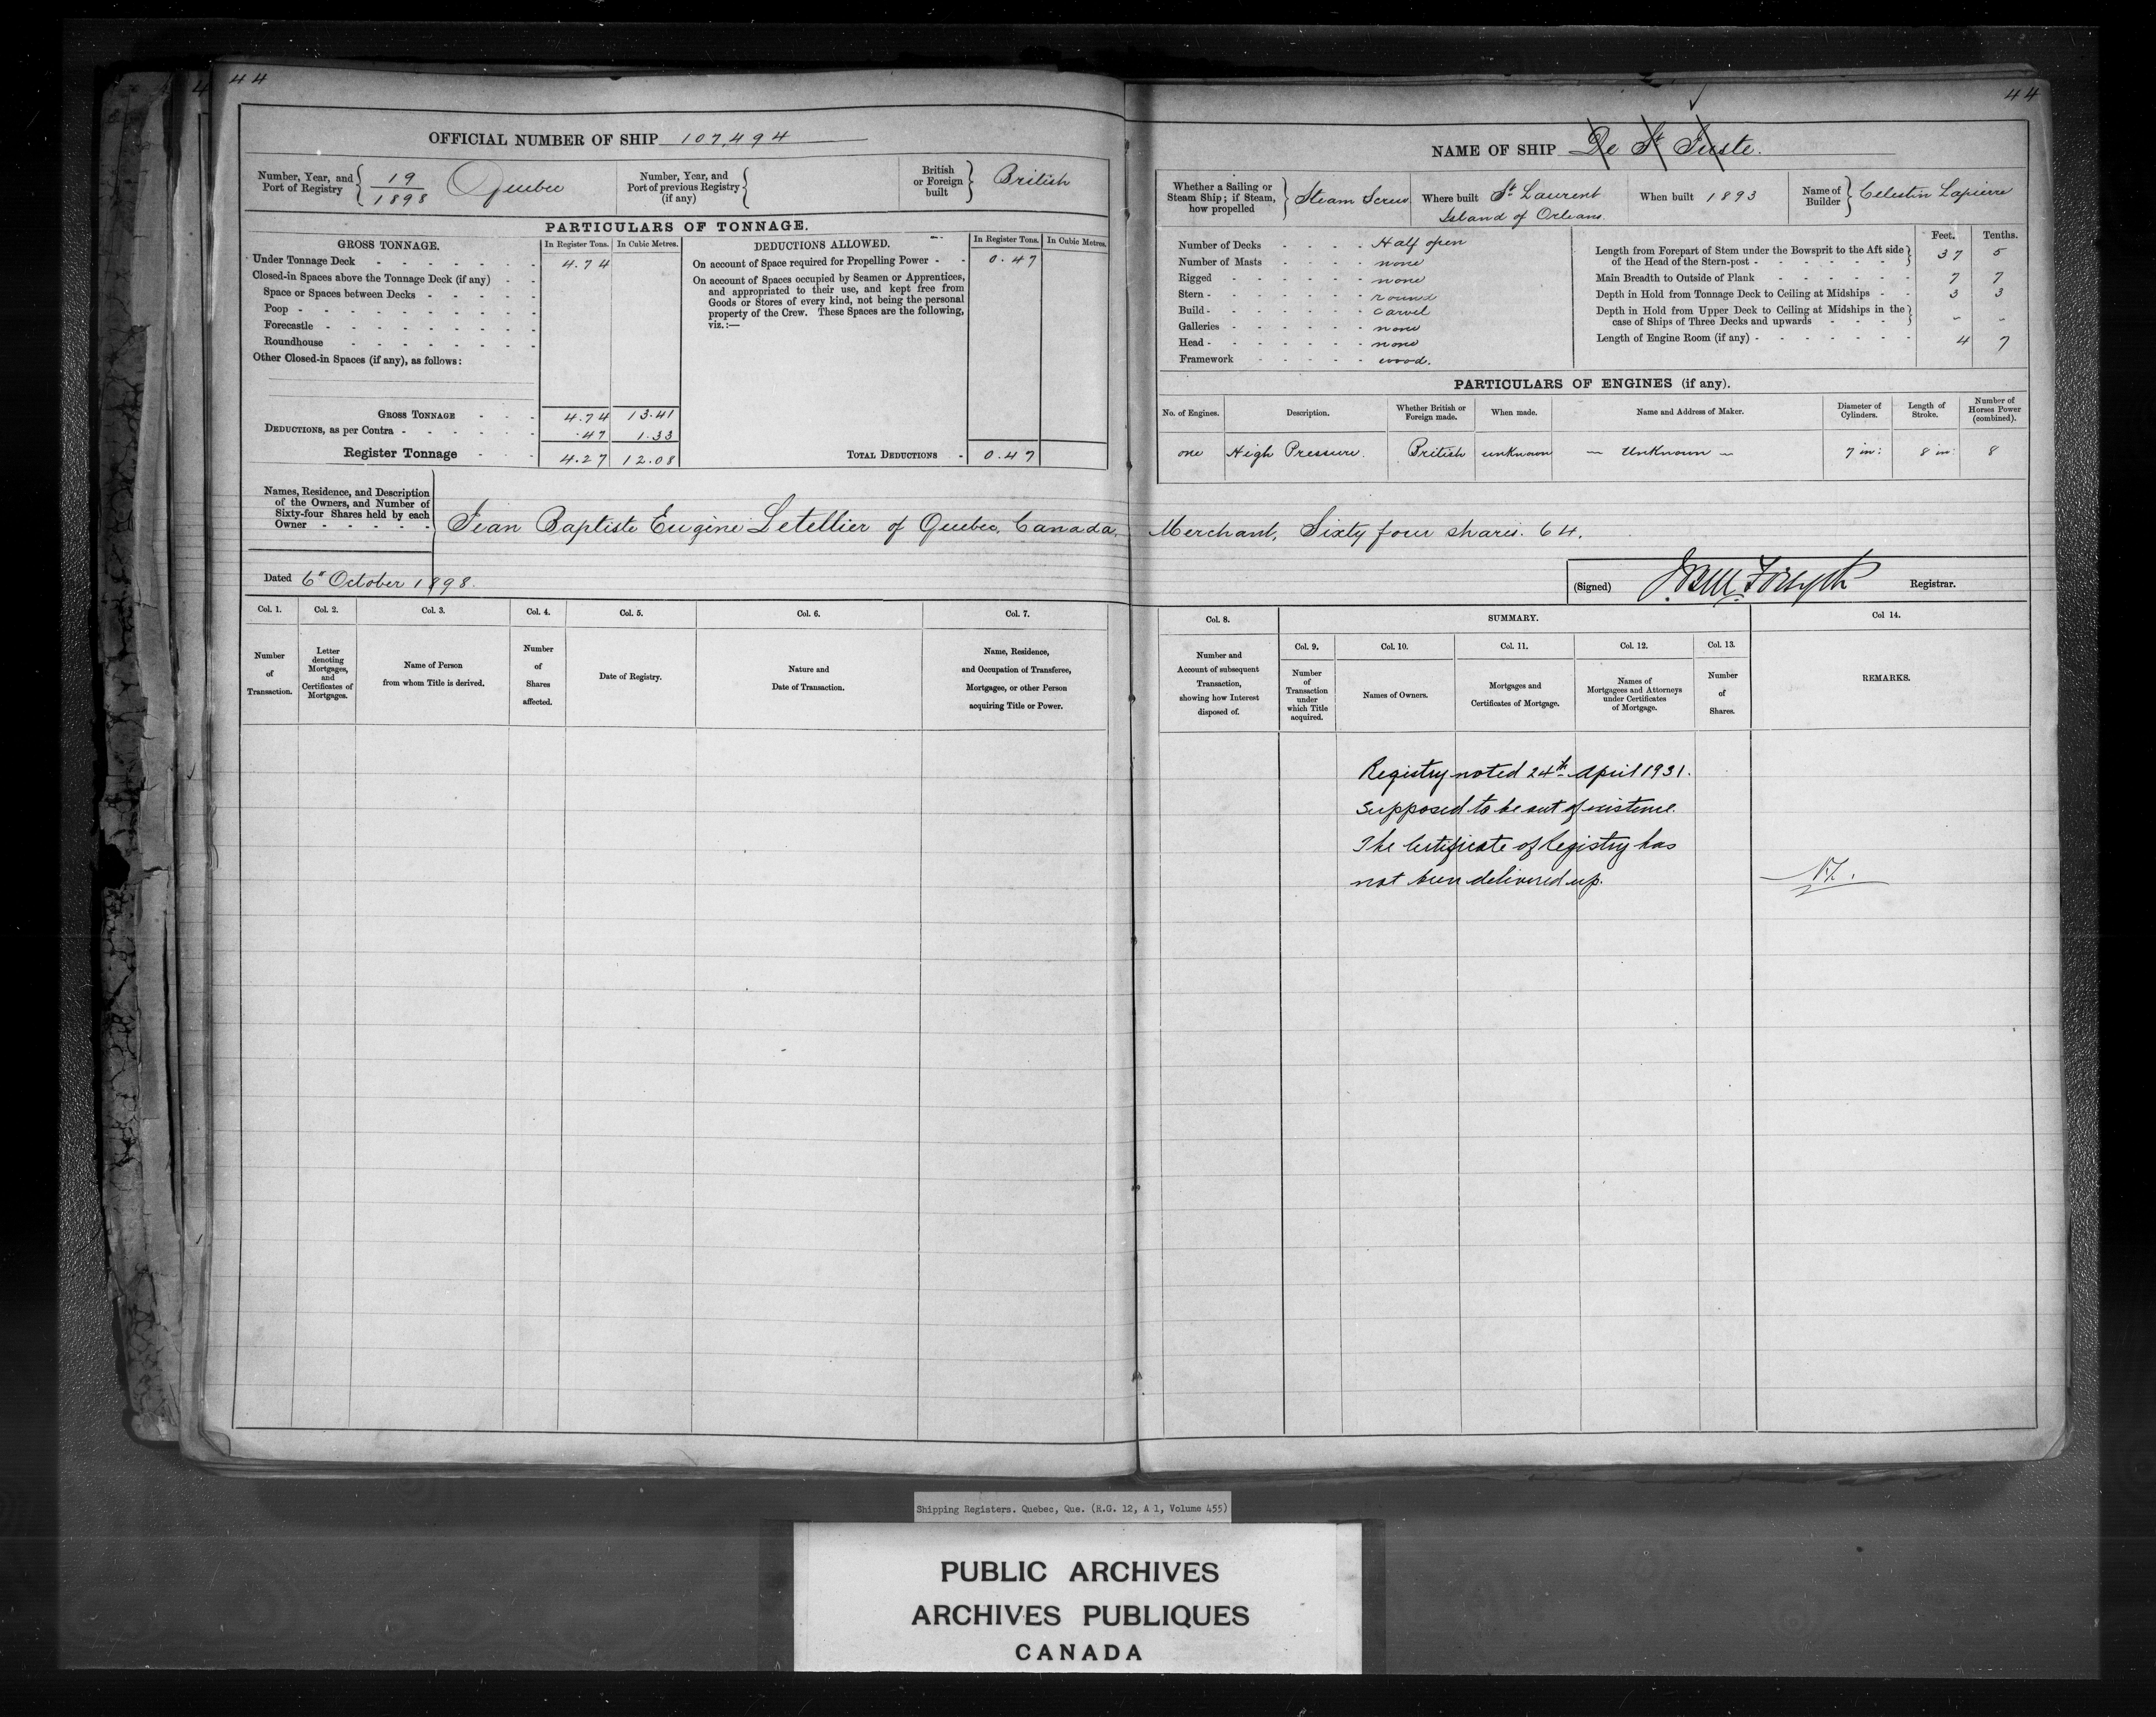 44
OFFICIAL NUMBER OF SHIP 107,494
Number, Year, and Port of Registry } 19/1898 Quebec
Number, Year, and Port of previous Registry (if any)
British or Foreign built } British
PARTICULARS OF TONNAGE.
GROSS TONNAGE. In Register Tons. In Cubic Metres.
Under Tonnage Deck - 4.74
Closed-in Spaces above the Tonnage Deck (if any)
Space or Spaces between Decks
Poop
Forecastle
Roundhouse
Other Closed-in Spaces (if any), as follows:
GROSS TONNAGE 4.74 13.41
DEDUCTIONS, as per Contra .47 1.33
Register Tonnage 4.27 12.08
DEDUCTIONS ALLOWED. In Register Tons. In Cubic Metres.
On account of Space required for Propelling Power - 0.47
On account of Spaces occupied by Seamen or Apprentices,
and appropriated to their use, and kept free from
Goods or Stores of every kind, not being the personal
property of the Crew. These Spaces are the following,
viz.:—
TOTAL DEDUCTIONS - 0.47
44
NAME OF SHIP De St Juste.
Whether a Sailing or Steam Ship; if Steam, how propelled } Steam Screw
Where built St Laurent Island of Orleans.
When built 1893
Name of Builder } Celestin Lapierre
Number of Decks Half open
Number of Masts none
Rigged none
Stern round
Build carvel
Galleries none
Head none
Framework wood.
Feet. Tenths.
Length from Forepart of Stem under the Bowsprit to the Aft side of the Head of the Stern-post 37 5
Main Breadth to Outside of Plank 7 7
Depth in Hold from Tonnage Deck to Ceiling at Midships 3 3
Depth in Hold from Upper Deck to Ceiling at Midships in the case of Ships of Three Decks and upwards - -
Length of Engine Room (if any) 4 7
PARTICULARS OF ENGINES (if any).
No. of Engines. Description. Whether British or Foreign made. When made. Name and Address of Maker. Diameter of Cylinders. Length of Stroke. Number of Horses Power (combined).
one High Pressure. British unknown — Unknown — 7 in: 8 in: 8
Names, Residence, and Description
of the Owners, and Number of
Sixty-four Shares held by each
Owner
Jean Baptiste Eugène Letellier of Quebec, Canada, Merchant, Sixty four shares. 64.
Dated 6th October 1898.
(Signed) J. Bell Forsyth Registrar.
Col. 1. Col. 2. Col. 3. Col. 4. Col. 5. Col. 6. Col. 7.
Number of Transaction.
Letter denoting Mortgages, and Certificates of Mortgages.
Name of Person from whom Title is derived.
Number of Shares affected.
Date of Registry.
Nature and Date of Transaction.
Name, Residence, and Occupation of Transferee, Mortgagee, or other Person acquiring Title or Power.
Col. 8. SUMMARY. Col 14.
Col. 9. Col. 10. Col. 11. Col. 12. Col. 13.
Number and Account of subsequent Transaction, showing how Interest disposed of.
Number of Transaction under which Title acquired.
Names of Owners.
Mortgages and Certificates of Mortgage.
Names of Mortgagees and Attorneys under Certificates of Mortgage.
Number of Shares.
REMARKS.
Registry noted 24th April 1931.
Supposed to be out of existence.
The Certificate of Registry has
not been delivered up.
Shipping Registers. Quebec, Que. (R.G. 12, A 1, Volume 455)
PUBLIC ARCHIVES
ARCHIVES PUBLIQUES
CANADA